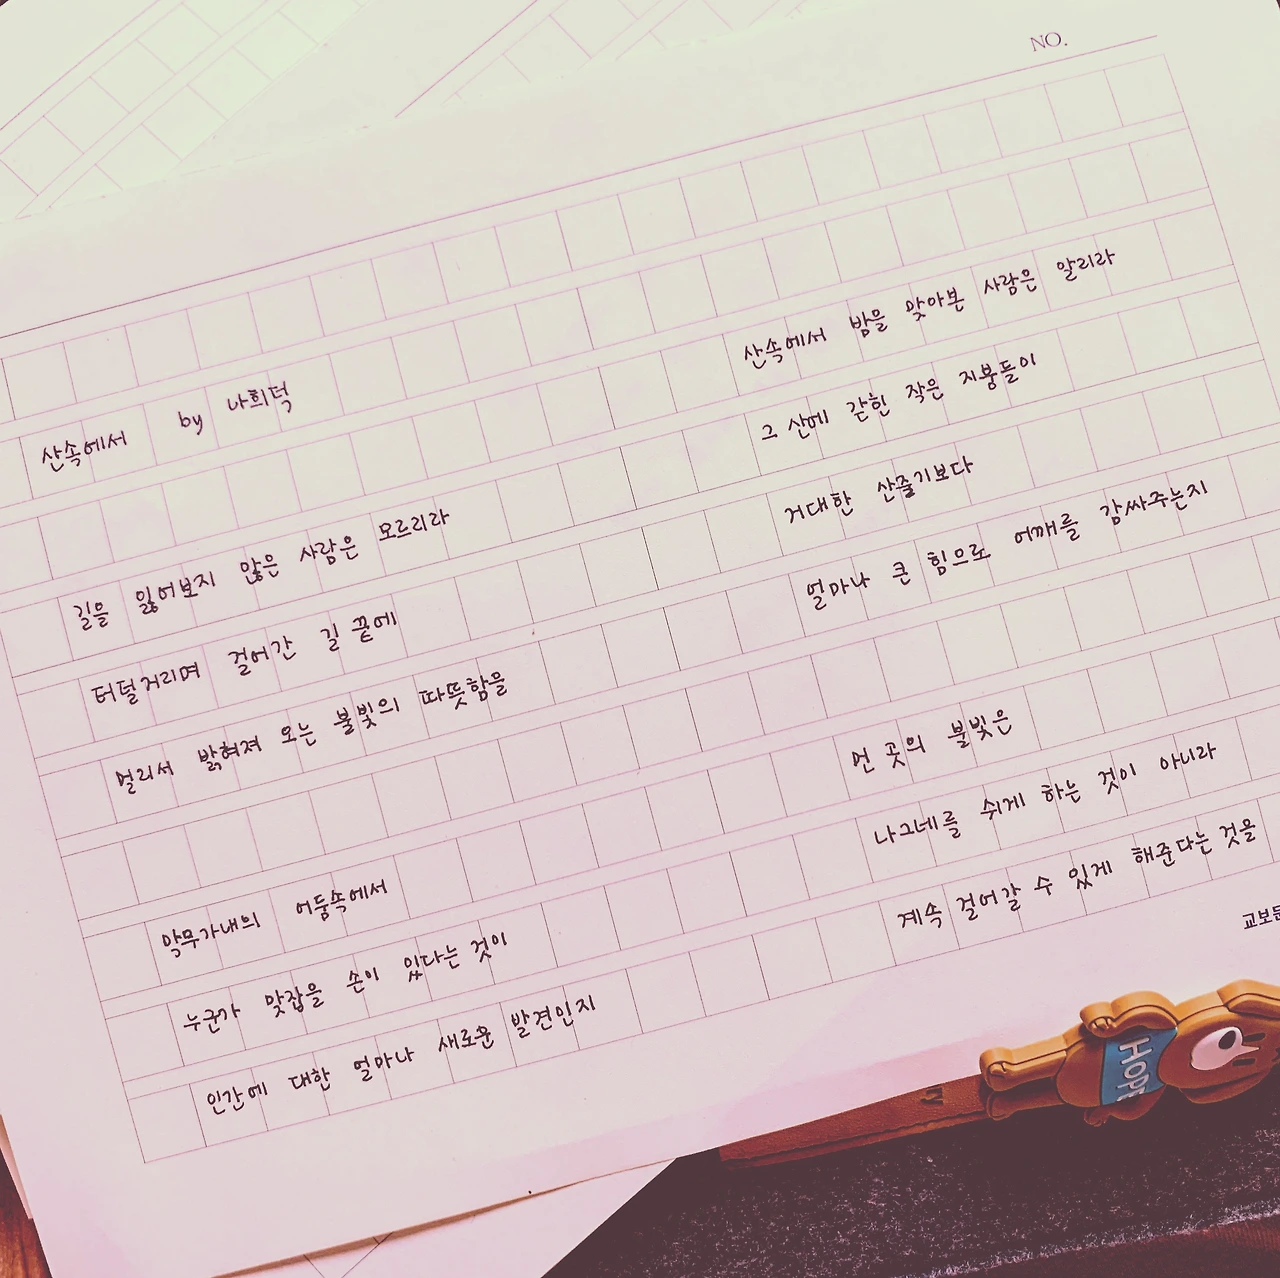 NO.
산속에서 by 나희덕
길을 잃어보지 않은 사람은 모르리라
터덜거리며 걸어간 길 끝에
멀리서 밝혀져 오는 불빛의 따뜻함을
막무가내의 어둠속에서
누군가 맞잡을 손이 있다는 것이
인간에 대한 얼마나 새로운 발견인지
산속에서 밤을 맞아본 사람은 알리라
그 산에 갇힌 작은 지붕들이
거대한 산줄기보다
얼마나 큰 힘으로 어깨를 감싸주는지
먼 곳의 불빛은
나그네를 쉬게 하는 것이 아니라
계속 걸어갈 수 있게 해준다는 것을
교보문
HOPE